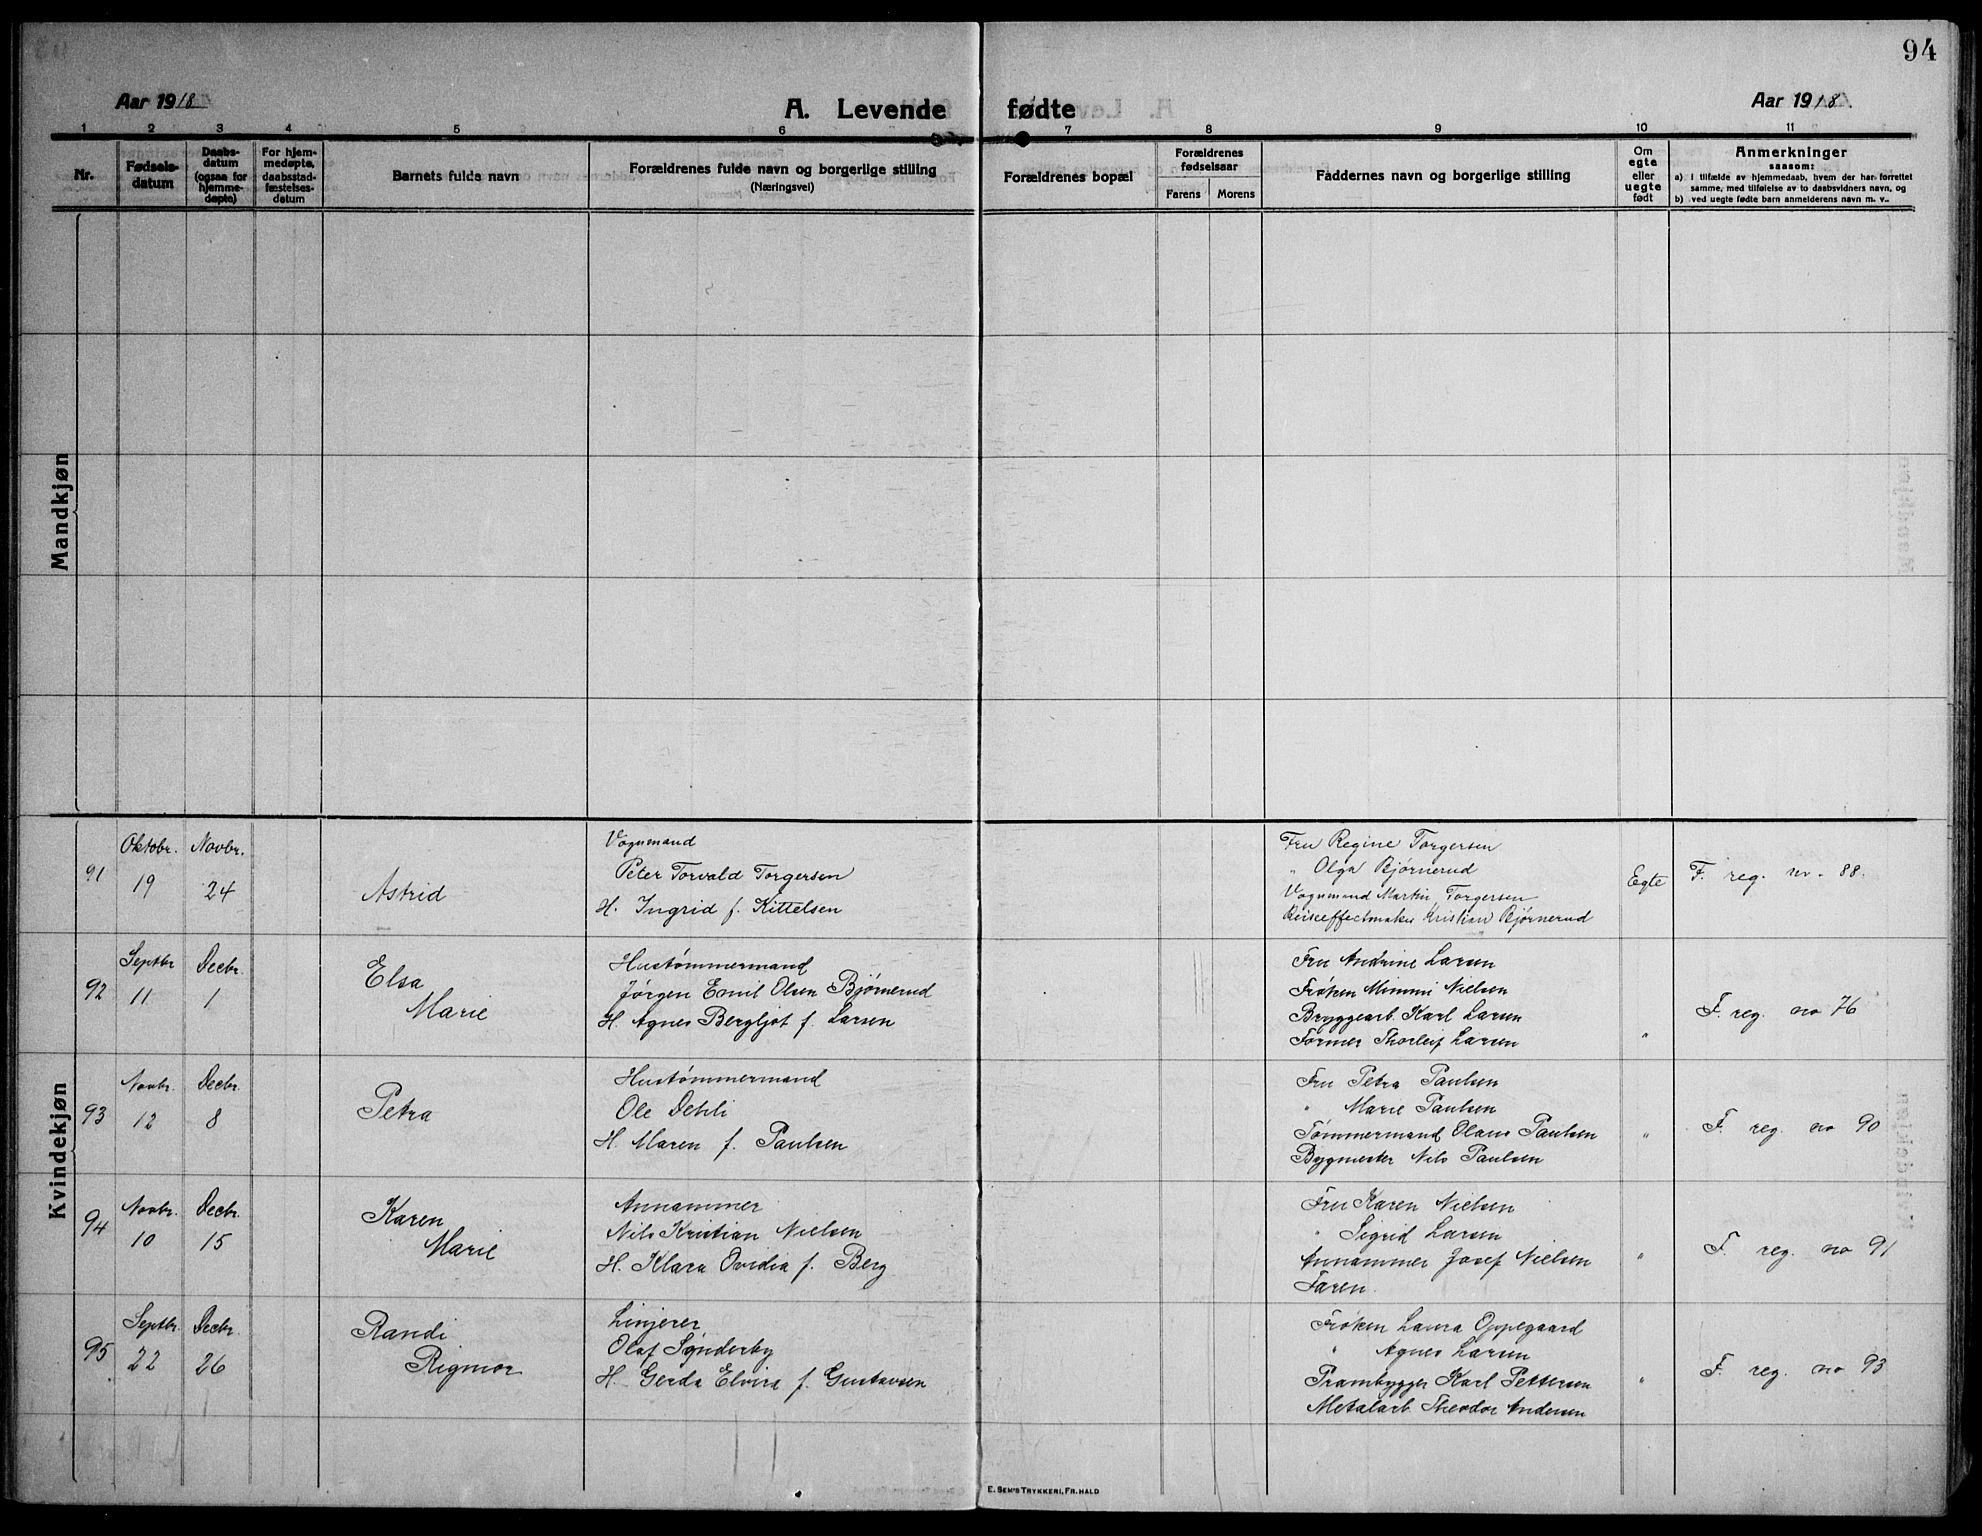 94
Aar 1918
A. Levende fødte
Aar 1918.
1 2 3 4 5 6 7 8 9 10 11
Nr.
Fødsels-
datum
Daabs-
datum
(ogsaa for
hjemme-
døpte)
For hjem-
medøpte,
daabsstad-
fæstelses-
datum
Barnets fulde navn
Forældrenes fulde navn og borgerlige stilling
(Næringsvei)
Forældrenes bopæl
Forældrenes
fødselsaar
Farens Morens
Faddernes navn og borgerlige stilling
Om
egte
eller
uegte
født
Anmerkninger
saasom:
a) I tilfælde av hjemmedaab, hvem der har forrettet
samme, med tilføielse av to daabsvidners navn, og
b) ved uegte fødte barn anmelderens navn m. v..
Mandkjøn
Kvindekjøn
91
Oktobr.
19
Novbr.
24
Astrid
Vognmand
Peter Torvald Torgersen
H. Ingrid f. Kittelsen
Fru Regine Torgersen
" Olga Bjørnerud
Vognmand Martin Torgersen
Reiseeffectmaker Kristian Bjørnerud
Egte
F. reg. no. 88.
92
Septbr
11
Decbr.
1
Elsa
Marie
Hustømmermand
Jørgen Emil Olsen Bjørnerud
H. Agnes Bergljot f. Larsen
Fru Andrine Larsen
Frøken Mimmi Nielsen
Bryggearb. Karl Larsen
Former Thorleif Larsen
"
F. reg. no 76
93
Novbr.
12
Decbr.
8
Petra
Hustømmermand
Ole Dehli
H. Maren f. Paulsen
Fru Petra Paulsen
" Marie Paulsen
Tømmermand Olaus Paulsen
Bygmester Nils Paulsen
"
F. reg. no 90
94
Novbr.
10
Decbr.
15
Karen
Marie
Annammer
Nils Kristian Nielsen
H. Klara Ovidia f. Berg
Fru Karen Nielsen
" Sigrid Larsen
Annammer Josef Nielsen
Faren.
"
F. reg. no 91
95
Septbr.
22
Decbr.
26
Randi
Rigmor
Linjerer
Olaf Sønderby
H. Gerda Elvira f. Gustavsen
Frøken Laura Oppegaard
" Agnes Larsen
Prambygger Karl Pettersen
Metalarb. Theodor Andersen
"
F. reg. no 93
E. SEM'S TRYKKERI, FR. HALD